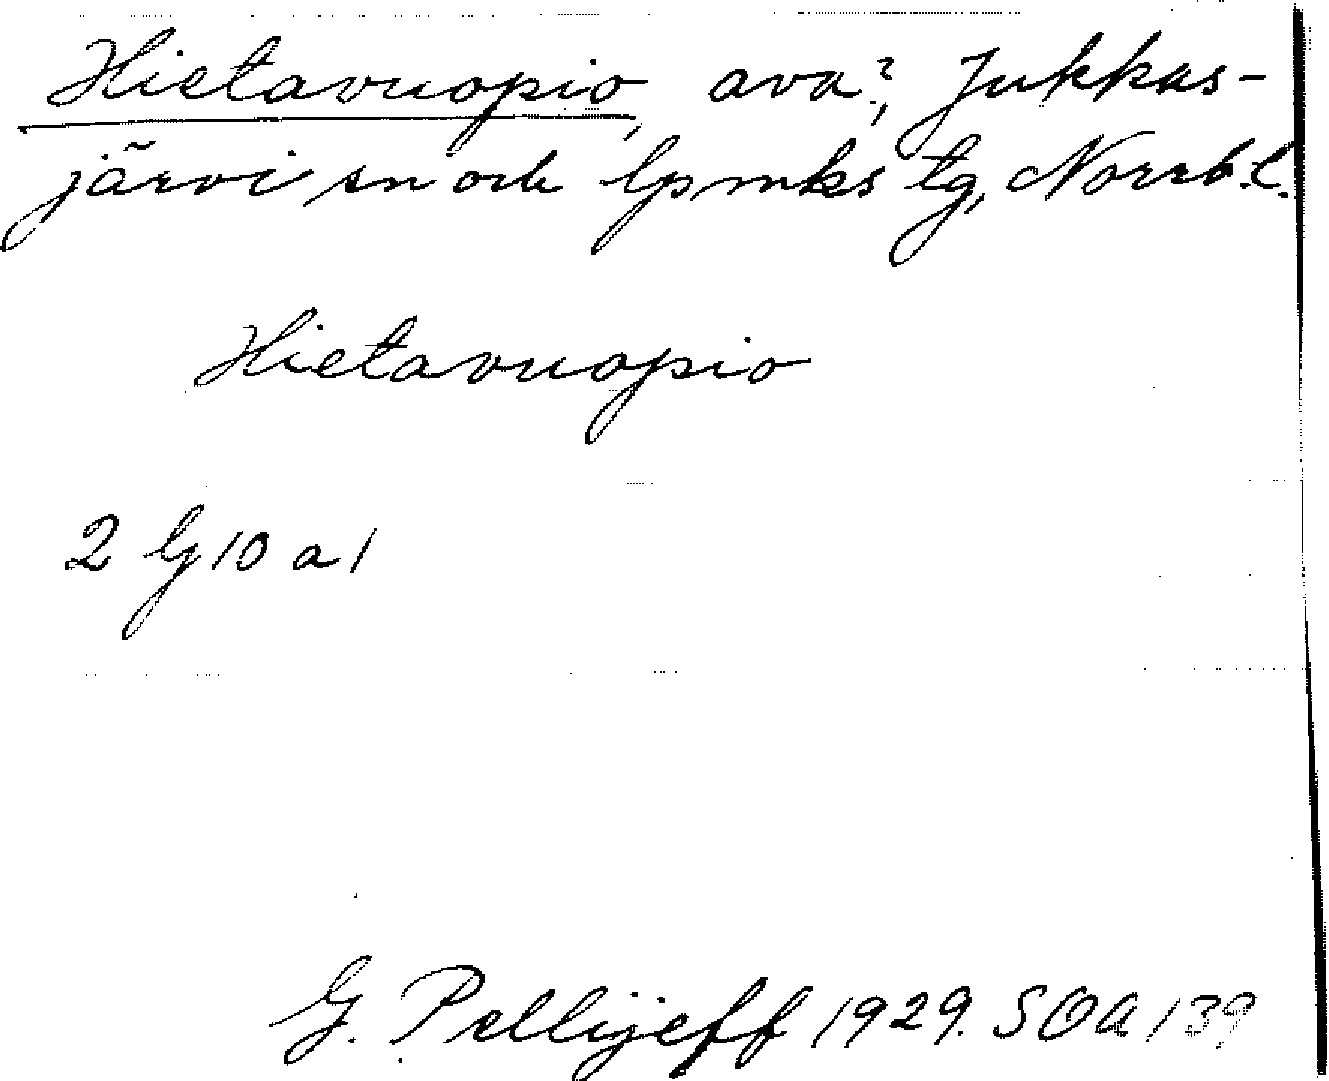 Hietavuopio, ava?, Jukkas-
järvi sn och lpmks tg, Norrb.l.
Hietavuopio
2 G 10 a 1
G. Pellijeff 1929. SOA 139